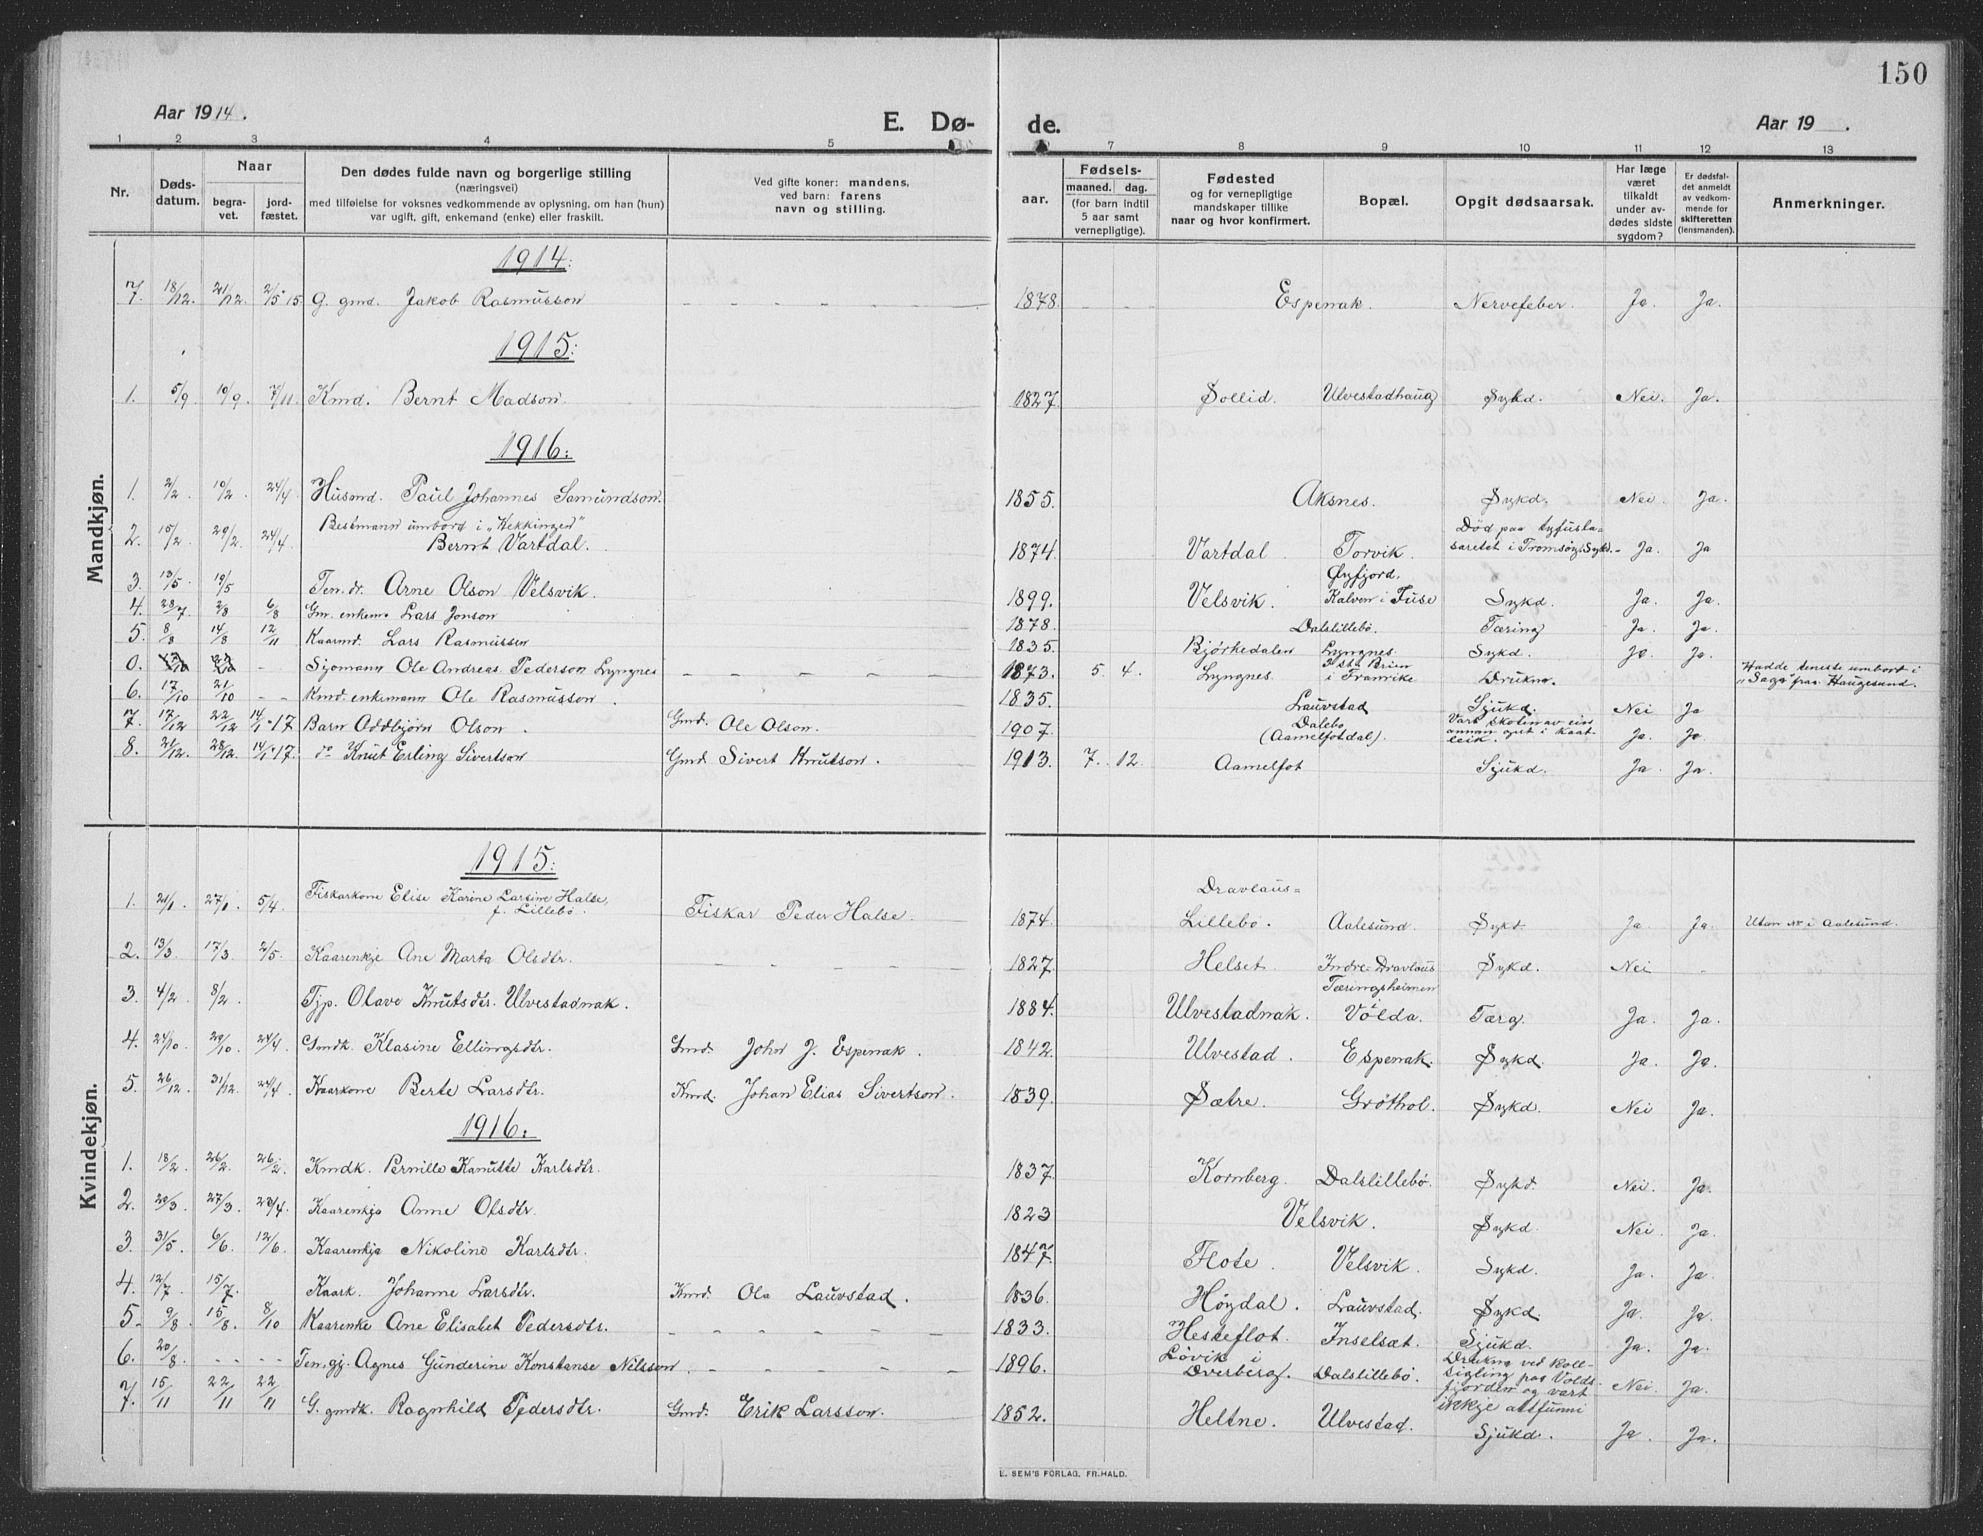 150
Aar 1914.
E. Dø-
de.
Aar 19 .
1 2 3 4 5 7 8 9 10 11 12 13
Nr.
Døds-
datum.
Naar
begra-
vet.
jord-
fæstet.
Den dødes fulde navn og borgerlige stilling
(næringsvei)
med tilføielse for voksnes vedkommende av oplysning, om han (hun)
var ugift, gift, enkemand (enke) eller fraskilt.
Ved gifte koner: mandens,
ved barn: farens
navn og stilling.
aar.
Fødsels-
maaned. dag.
(for barn indtil
5 aar samt
vernepligtige).
Fødested
og for vernepligtige
mandskaper tillike
naar og hvor konfirmert.
Bopæl.
Opgit dødsaarsak.
Har læge
været
tilkaldt
under av-
dødes sidste
sygdom?
Er dødsfal-
det anmeldt
av vedkom-
mende for
skifteretten
(lensmanden).
Anmerkninger.
Mandkjøn.
1914:
7. 18/12. 21/12. 2/5 15. G. gmd. Jakob Rasmusson 1878. Espenak. Nervefeber. Ja. Ja.
1915:
1. 5/9. 10/9. 7/11. Kmd. Bernt Madson. 1827. Sollid. Ulvestadhaug Sykd. Nei. Ja.
1916:
1. 2/2. 10/2. 24/4 Husmd. Paul Johannes Samundson. 1855. Aksnes. Sykd. Nei. Ja.
Bestmann umbord i „Kekkingen"
2. 15/2. 20/2. 24/4. Bernt Vartdal. 1874. Vartdal Torvik. Død paa tyfusla-
saretet i Tromsø, Sykd. Ja. Ja
3. 13/5. 19/5 Ten. dr. Arne Olson Velsvik. 1899. Velsvik. Øyfjord,
Kalven i Fuse Sykd. Ja. Ja.
4. 28/7 2/8 6/8 Gm. enkem. Lars Jonson 1878. Dalslillebø. Tæring Ja. Ja.
5. 8/8 14/8 12/11 Kaarmd. Lars Rasmussen 1835. Bjørkedalen Lyngnes. Sykd. Ja. Ja.
0. 17/10 - Sjomann Ole Andreas Pederson Lyngnes 1873. 5. 4. Lyngnes. St. Brien
i Franrike Drukna. Hadde teneste umbord i
„Saga" fraa Haugesund.
6. 17/10 21/10 - - Kmd. enkmann Ole Rasmusson. 1835. Lauvstad Sjukd. Nei Ja
7. 17/12 22/12 14/1-17 Barn Oddbjørn Olson. Gmd. Ole Olson. 1907. Dalebø
(Aamelfotdal). Vart skoten av ein
annan gut i kaat-
leik. Ja. Ja.
8. 21/12. 28/12. 14/1-17. do Knut Erling Sivertson Gmd Sivert Knutson. 1913. 7. 12. Aamelfot Sjukd. Ja. Ja.
Kvindekjøn.
1915:
1. 21/1. 27/1. 5/4. Fiskarkone Elise Karine Larsine Halse,
f. Lillebø. Fiskar Peder Halse. 1874. Dravlaus=
Lillebø. Aalesund. Sykd. Ja. Ja. Utan Nr i Aalesund.
2. 13/3. 17/3. 2/5. Kaarenkje Ane Marta Olsdtr. 1827. Helset. Indre-Dravlaus Sykd. Nei
3. 4/2. 8/2. Tjp. Olave Knutsdtr. Ulvestadnak. 1884. Ulvestadnak. Tæringsheimen
i Volda. Tærg. Ja. Ja.
4. 24/10. 29/10. 24/4 Gmdk. Klasine Ellingsdtr. Gmd. John J. Espenak. 1842. Ulvestad. Espenak. Sykd. Ja. Ja.
5. 26/12. 31/12. 24/4. Kaarkone Berte Larsdtr. Kmd. Johan Elias Sivertson. 1839. Sætre. Grøthol. Sykd. Nei Ja.
1916:
1. 18/2. 26/2. 26/2. Kmdk. Pernille Kanutte Karlsdtr. 1837. Kornberg. Dalslillebø. Sykd. Nei. Ja.
2. 20/3. 27/3. 28/4. Kaarenkja Anne Olsdtr. 1823 Velsvik. Sykd. Nei. Ja.
3. 31/5. 6/6. 12/6. Kaarenkja Nikoline Karlsdtr. 1847. Flote. Velsvik. Sykd. Ja. Ja.
4. 12/7. 15/7. Kaark. Johanne Larsdtr. Kmd. Ola Lauvstad. 1836. Høydal. Lauvstad. Sykd. Ja. Ja.
5. 9/8. 15/8. 8/10 Kaarenke Ane Elisabet Pedersdtr. 1833. Hesteflot. Inselsæt. Sjukd. Ja. Ja.
6. 20/8. - - - - Ten. gj. Agnes Gunderine Konstanse Nilsson. 1896. Løvik i
Dverberg. Dalslillebø. Drukna ved koll-
sigling paa Volds-
fjorden og vart
ikkje attfunni Nei. Ja.
7. 15/11 22/11 22/11 G. gmdk. Ragnhild Pedersdtr. Gmd. Erik Larsson. 1852. Heltne. Ulvestad. Sjukd. Ja. Ja.
E. SEM'S FORLAG, FR.HALD.